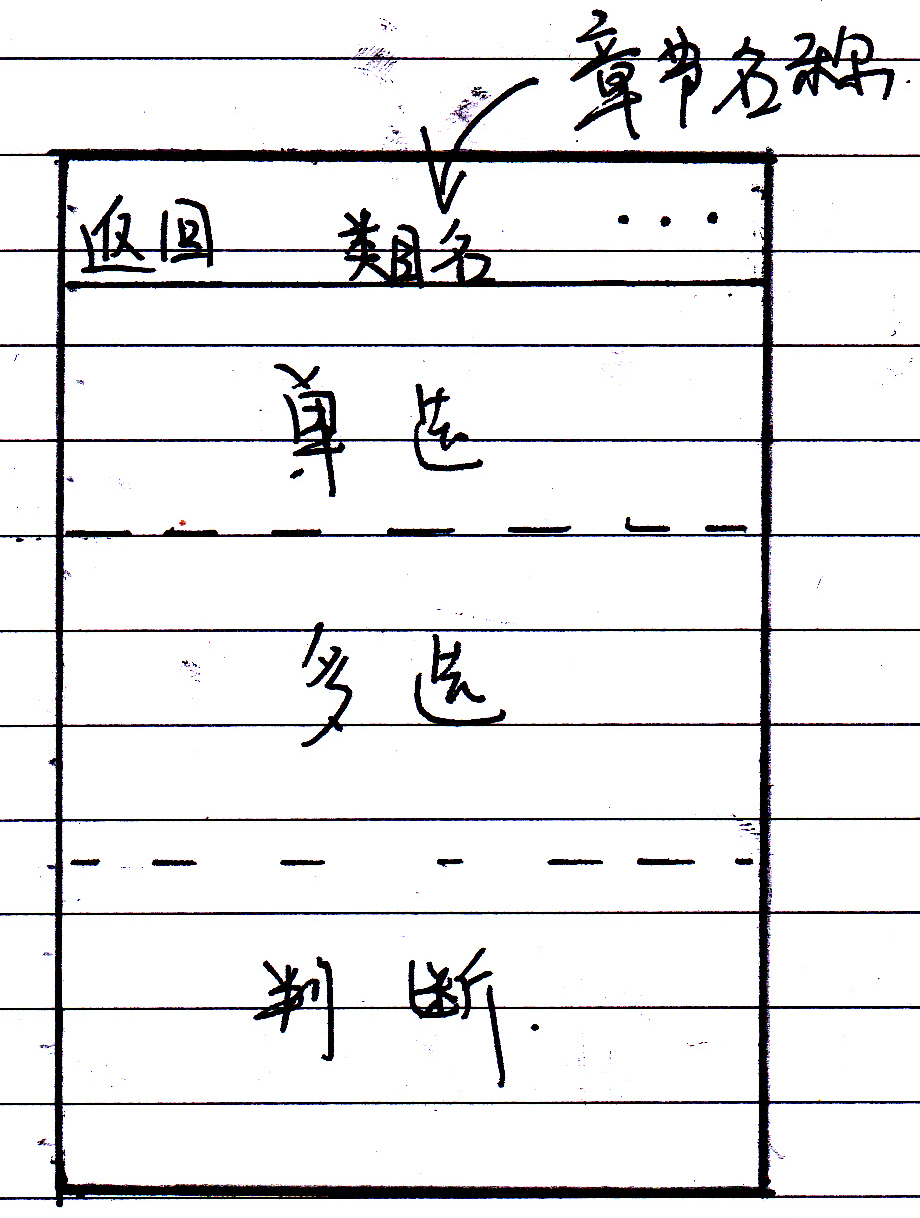 章节名称
返回 类目名 ...
单选
多选
判断.